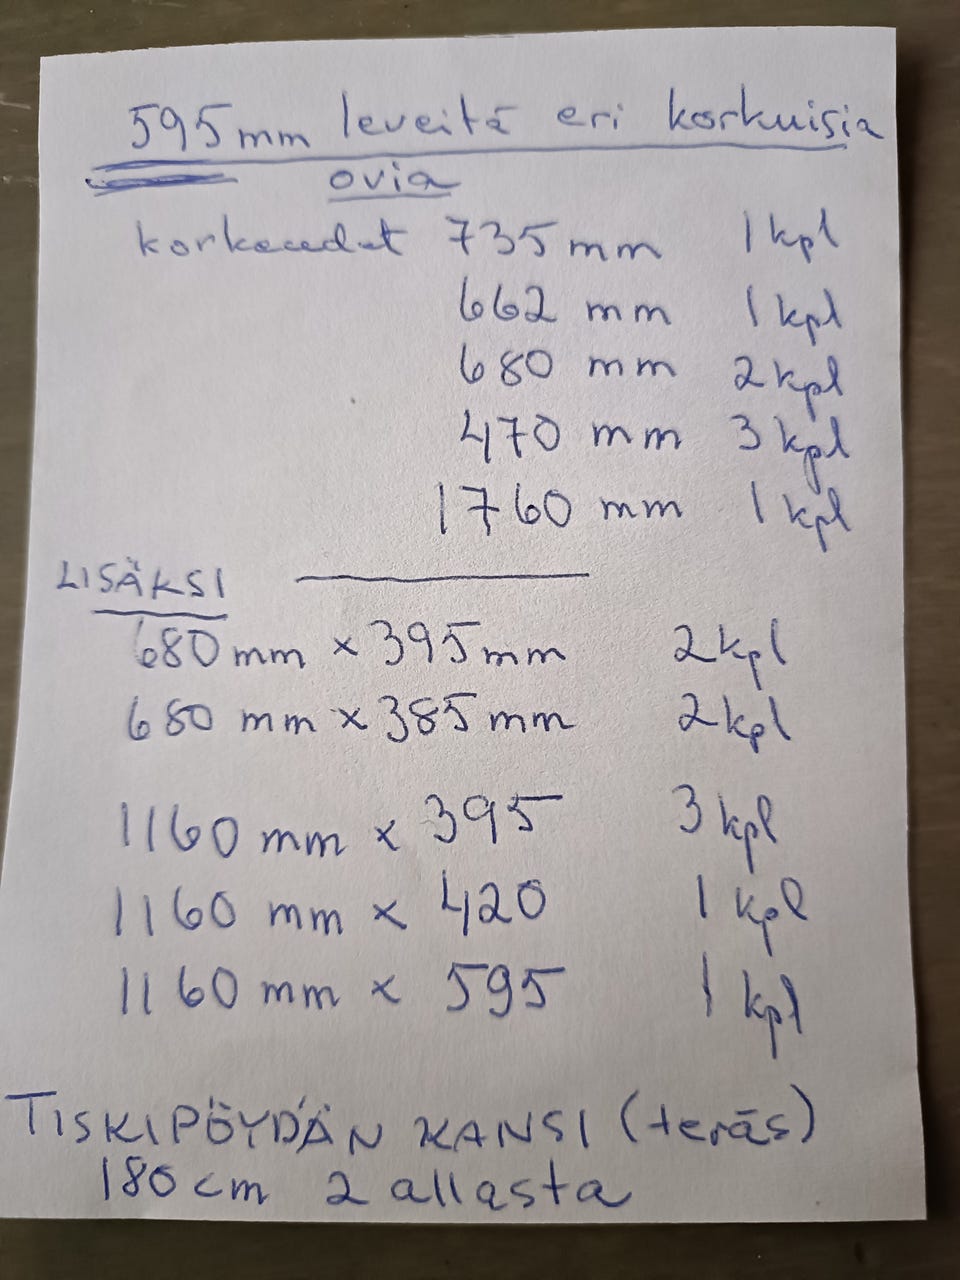 595mm leveitä eri korkuisia
ovia
korkeudet 735mm 1kpl
662 mm 1kpl
680 mm 2kpl
470 mm 3kpl
1760 mm 1kpl
LISÄKSI
680mm x 395mm 2kpl
680 mm x 385mm 2kpl
1160 mm x 395 3kpl
1160 mm x 420 1 kpl
1160 mm x 595 1 kpl
TISKIPÖYDÄN KANSI (teräs)
180cm 2 allasta